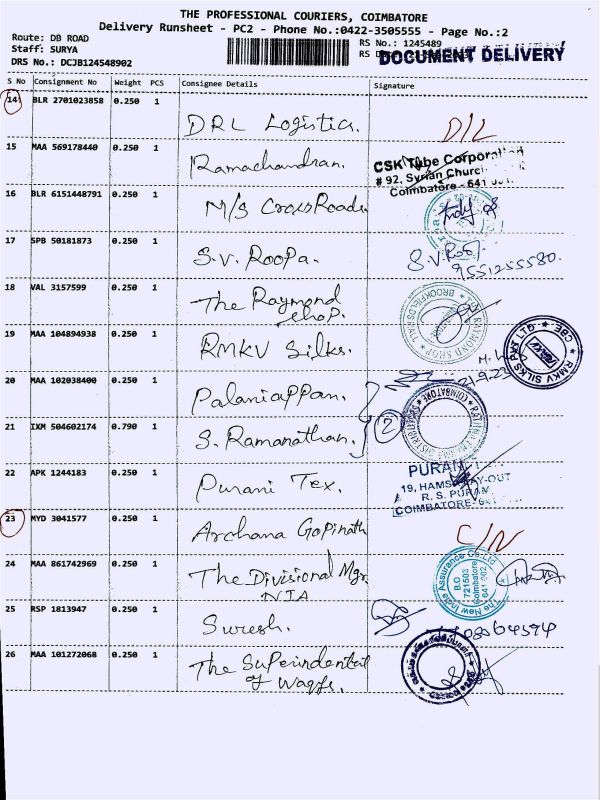 THE PROFESSIONAL COURIERS, COIMBATORE
Delivery Runsheet - PC2 - Phone No.:0422-3505555 - Page No.:2
Route: DB ROAD
Staff: SURYA
DRS No.: DCJB124548902
RS No.: 1245489
RS D
DOCUMENT DELIVERY
S No Consignment No Weight PCS Consignee Details Signature
14 BLR 2701023858 0.250 1
DRL Logistics. D/L
15 MAA 569178440 0.250 1
Ramachandran.
CSK Tube Corporation
# 92, Syrian Church
Coimbatore - 641
16 BLR 6151448791 0.250 1
M/S CrossRoads
17 SPB 50181873 0.250 1
S.V. Roopa. S.V. Roopa
9551255580.
18 VAL 3157599 0.250 1
The Raymond
shop.
RAYMOND SHOP
BROOKFIELDS
19 MAA 104894938 0.250 1
RMKV Silks.
21.9.23
RMKV SILKS PVT LTD
CBE
RMKV
20 MAA 102038400 0.250 1
Palaniappan.
21 IXM 504602174 0.790 1
S. Ramanathan. 2
COIMBATORE
22 APK 1244183 0.250 1
Purani Tex.
PURANI
19, HAMS LAY-OUT
R. S. PURAM
COIMBATORE- 641
23 MYD 3041577 0.250 1
Archana Gopinath C/N
24 MAA 861742969 0.250 1
The Divisional Mgr.
NIA
The New India Assurance Co.Ltd
B.O
721503
Coimbatore
641 002
25 RSP 1813947 0.250 1
Suresh.
26 MAA 101272068 0.250 1
The Superindentent
of Waqfs.